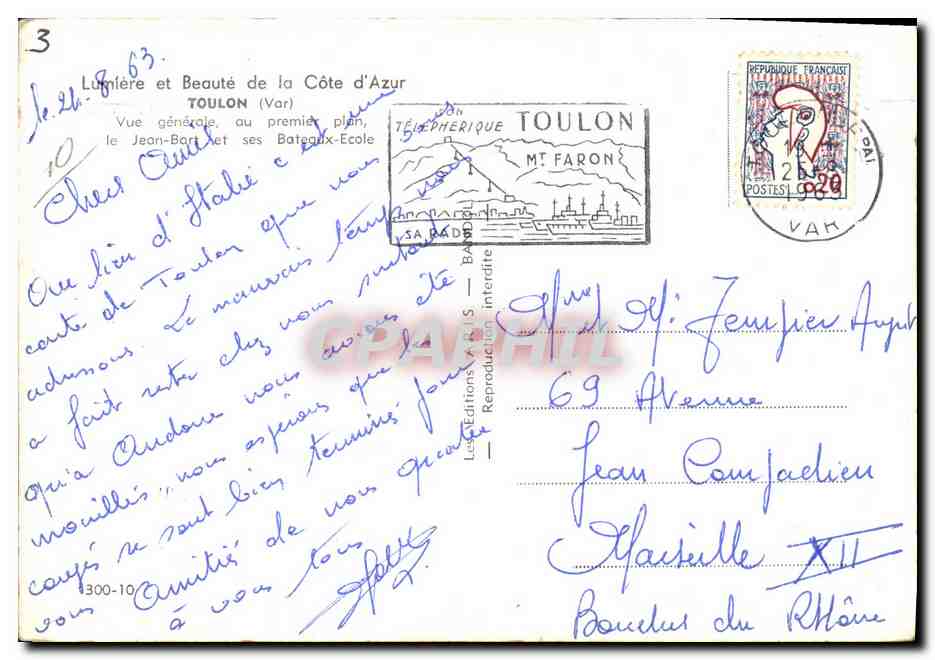 3
le 26-8-63.
Lumière et Beauté de la Côte d'Azur
TOULON (Var)
Vue générale, au premier plan,
le Jean-Bart et ses Bateaux-Ecole
10
Chers Amis
Que lieu d'Italie c'est une
carte de Toulon que nous vous
adressons. Le mauvais temps nous
a fait rester chez nous surtout
qu'a Andorre nous avions été
mouillés, nous espérons que les
congés se sont bien terminés pour
vous Amitiés de nous quatre
à vous tous
300-10
SON
TÉLÉPHERIQUE TOULON
MT FARON
SA RADE
REPUBLIQUE FRANÇAISE
0,20
POSTES
VAR
Les Editions ARIS — BANDOL
Reproduction interdite
CPAPHIL
Mme et Mr. Tempier August
69 Avenue
Jean Compadieu
Marseille XII
Bouches du Rhône